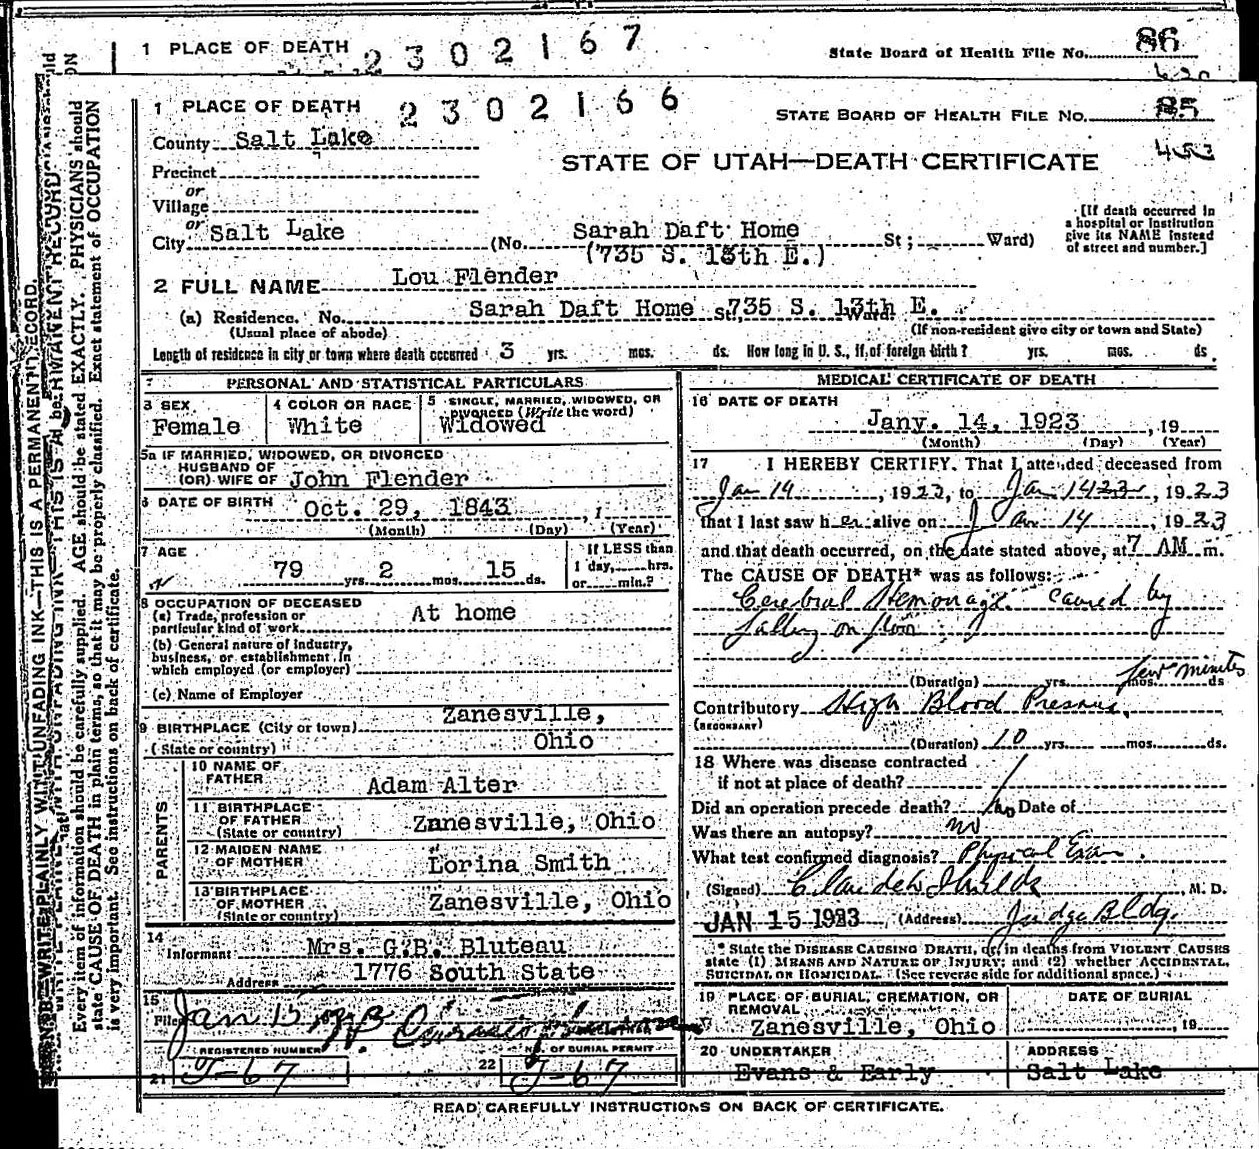 1 PLACE OF DEATH 2302167 State Board of Health File No. 86
1 PLACE OF DEATH 2302166 STATE BOARD OF HEALTH FILE NO. 85
County Salt Lake
STATE OF UTAH—DEATH CERTIFICATE
Precinct
or
Village
or
City Salt Lake (No. Sarah Daft Home St; Ward)
(735 S. 13th E.)
[If death occurred in
a hospital or institution
give its NAME instead
of street and number.]
2 FULL NAME Lou Flender
(a) Residence. No. Sarah Daft Home St. 735 S. 13th E. Ward
(Usual place of abode) (If non-resident give city or town and State)
Length of residence in city or town where death occurred 3 yrs. mos. ds. How long in U. S., if of foreign birth? yrs. mos. ds.
PERSONAL AND STATISTICAL PARTICULARS
3 SEX
Female
4 COLOR OR RACE
White
5 SINGLE, MARRIED, WIDOWED, OR
DIVORCED (Write the word)
Widowed
5a IF MARRIED, WIDOWED, OR DIVORCED
HUSBAND OF
(OR) WIFE OF John Flender
6 DATE OF BIRTH Oct. 29, 1843, 1
(Month) (Day) (Year)
7 AGE
79 yrs. 2 mos. 15 ds.
If LESS than
1 day, hrs.
or min.?
8 OCCUPATION OF DECEASED
(a) Trade, profession or
particular kind of work At home
(b) General nature of industry,
business, or establishment in
which employed (or employer)
(c) Name of Employer
9 BIRTHPLACE (City or town) Zanesville,
(State or country) Ohio
PARENTS
10 NAME OF
FATHER Adam Alter
11 BIRTHPLACE
OF FATHER
(State or country) Zanesville, Ohio
12 MAIDEN NAME
OF MOTHER Lorina Smith
13 BIRTHPLACE
OF MOTHER
(State or country) Zanesville, Ohio
14
Informant Mrs. G.B. Bluteau
Address 1776 South State
15
Filed Jan 15
REGISTERED NUMBER NO. OF BURIAL PERMIT
21 J-67 22 J-67
MEDICAL CERTIFICATE OF DEATH
16 DATE OF DEATH
Jany. 14, 1923, 19
(Month) (Day) (Year)
17 I HEREBY CERTIFY. That I attended deceased from
Jan 14, 1923, to Jan 14 23, 1923
that I last saw her alive on Jan 14, 1923
and that death occurred, on the date stated above, at 7 AM m.
The CAUSE OF DEATH* was as follows:
Cerebral Hemorrage caused by
falling on floor
(Duration) yrs. mos. few minutes ds
Contributory High Blood Pressure.
(SECONDARY)
(Duration) 10 yrs. mos. ds.
18 Where was disease contracted
if not at place of death?
Did an operation precede death? No Date of
Was there an autopsy? no
What test confirmed diagnosis? Physical Exam.
(Signed) Claude W Shields, M. D.
JAN 15 1923 (Address) Judge Bldg.
* State the DISEASE CAUSING DEATH, or, in deaths from VIOLENT CAUSES
state (1) MEANS AND NATURE OF INJURY; and (2) whether ACCIDENTAL,
SUICIDAL OR HOMICIDAL. (See reverse side for additional space.)
19 PLACE OF BURIAL, CREMATION, OR
REMOVAL
Zanesville, Ohio
DATE OF BURIAL
, 19
20 UNDERTAKER
Evans & Early
ADDRESS
Salt Lake
READ CAREFULLY INSTRUCTIONS ON BACK OF CERTIFICATE.
N. B.—WRITE PLAINLY WITH UNFADING INK—THIS IS A PERMANENT RECORD.
Every item of information should be carefully supplied. AGE should be stated EXACTLY. PHYSICIANS should
state CAUSE OF DEATH in plain terms, so that it may be properly classified. Exact statement of OCCUPATION
is very important. See instructions on back of certificate.